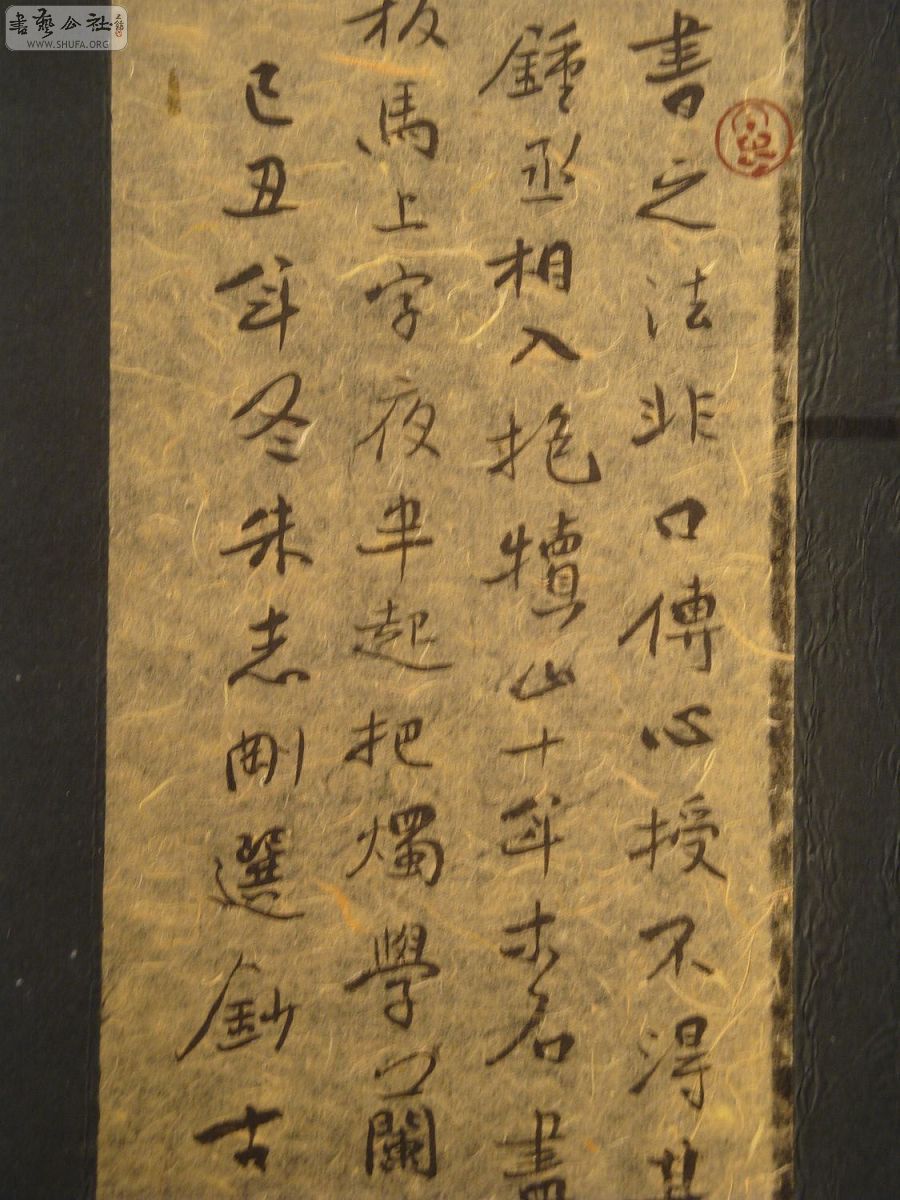 書之法非口傳心授不得其
鍾丞相入抱犢山十年木石盡
板馬上字夜半起把燭學口闌
己丑年冬朱志剛選鈔古
書藝公社
WWW.SHUFA.ORG